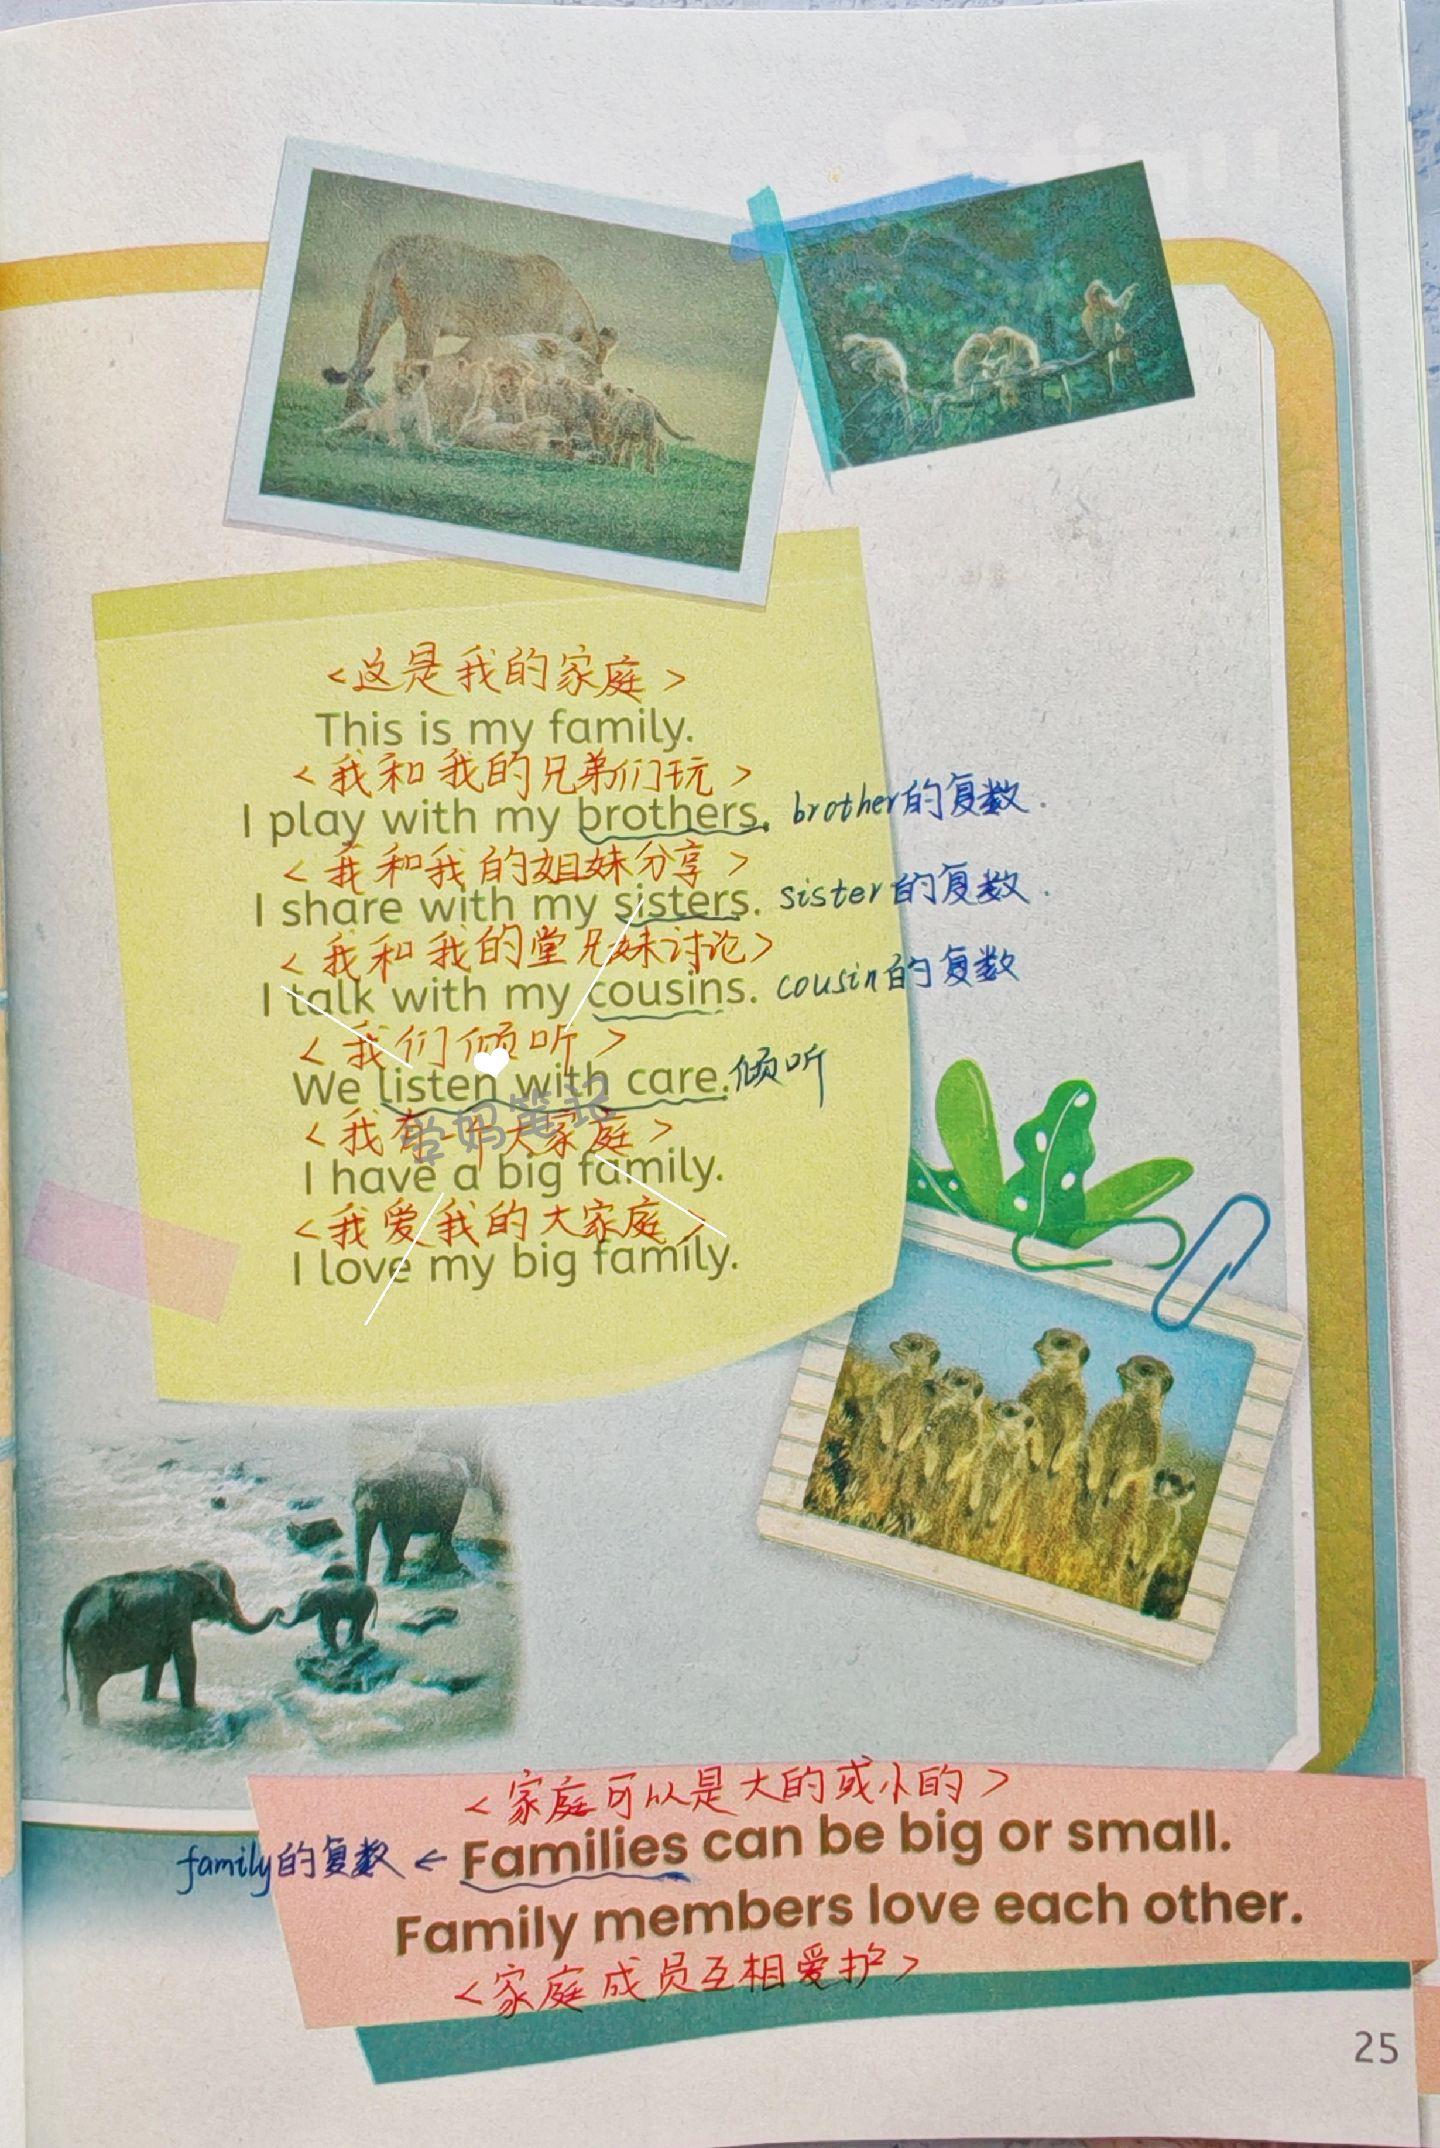 <这是我的家庭>
This is my family.
<我和我的兄弟们玩>
I play with my brothers. brother的复数.
<我和我的姐妹分享>
I share with my sisters. sister的复数.
<我和我的堂兄妹讨论>
I talk with my cousins. cousin的复数
<我们倾听>
We listen with care. 倾听
学妈笔记
<我有一个大家庭>
I have a big family.
<我爱我的大家庭>
I love my big family.
<家庭可以是大的或小的>
family的复数 ← Families can be big or small.
Family members love each other.
<家庭成员互相爱护>
25